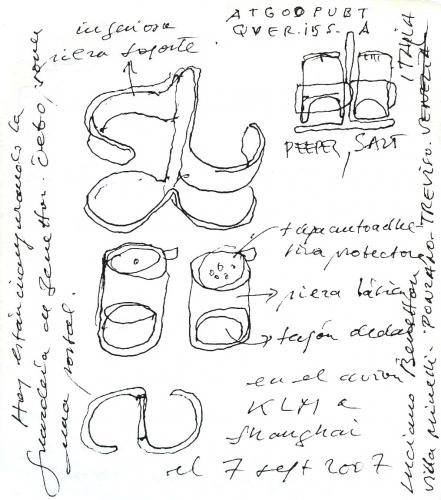 ingeniosa
pieza soporte
ATGODPUBT
QVER.155.A
PEEPER, SALT
tapa autoadhe-
siva protectora
pieza básica
tapón dedal
en el avión
KLM a
Shanghai
el 7 sept 2007
Hoy están inaugurando la
guardería de Benetton. Debo
una postal.
Luciano Benetton
villa minelli. PONZANO. TREVISO. VENEZIA
ITALIA